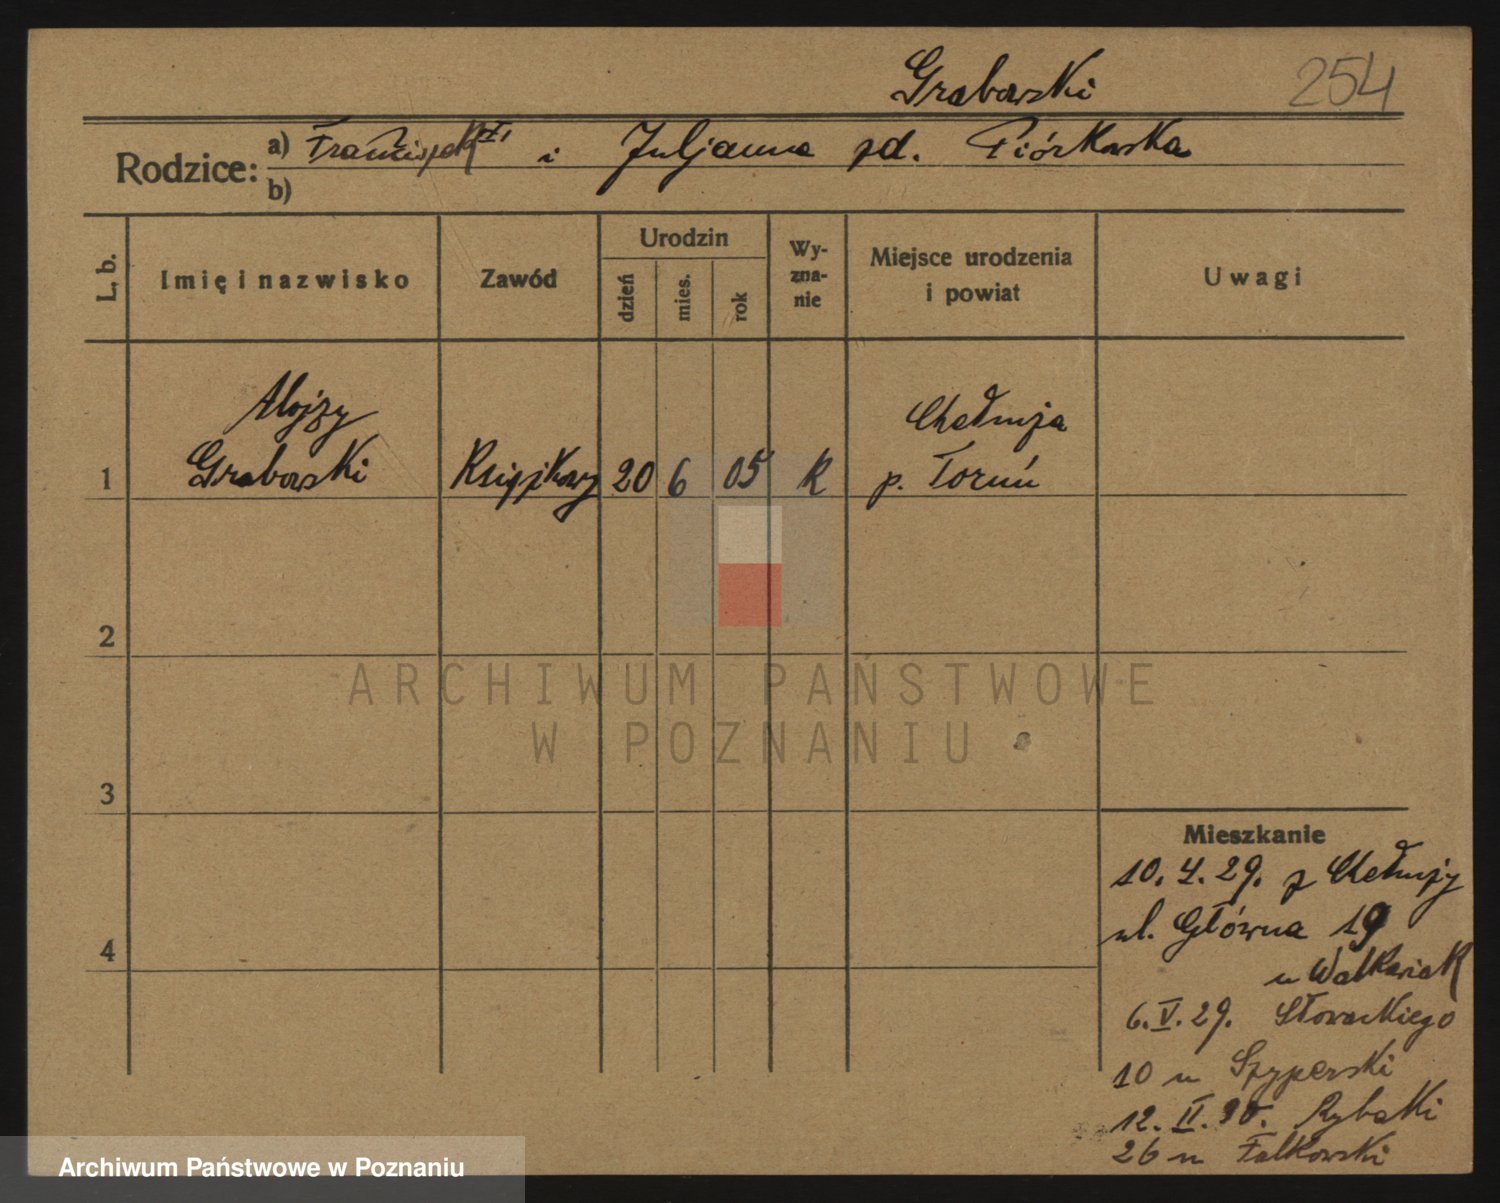 Grabowski 254
Rodzice: a) Franciszek i Juljanna zd. Piórkowska
b)
L. b. Imię i nazwisko Zawód Urodzin dzień mies. rok Wy-zna-nie Miejsce urodzenia i powiat Uwagi
Alojzy Chełmża
1 Grabowski Książkowy 20 6 05 k p. Toruń
2
ARCHIWUM PAŃSTWOWE
W POZNANIU
3
Mieszkanie
10. 4. 29. z Chełmży
ul. Główna 19
4
u Walkowiak
6. V. 29. Słowackiego
10 u Szyperski
12. II. 30. Rybaki
26 u Falkowski
Archiwum Państwowe w Poznaniu